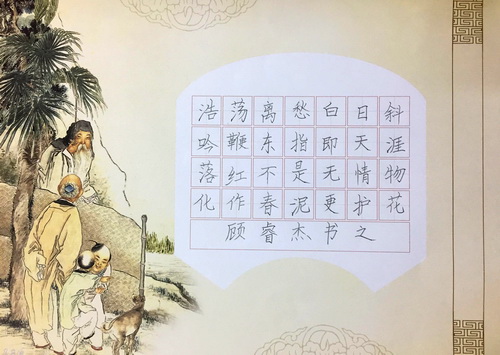 浩荡离愁白日斜
吟鞭东指即天涯
落红不是无情物
化作春泥更护花
顾睿杰书之